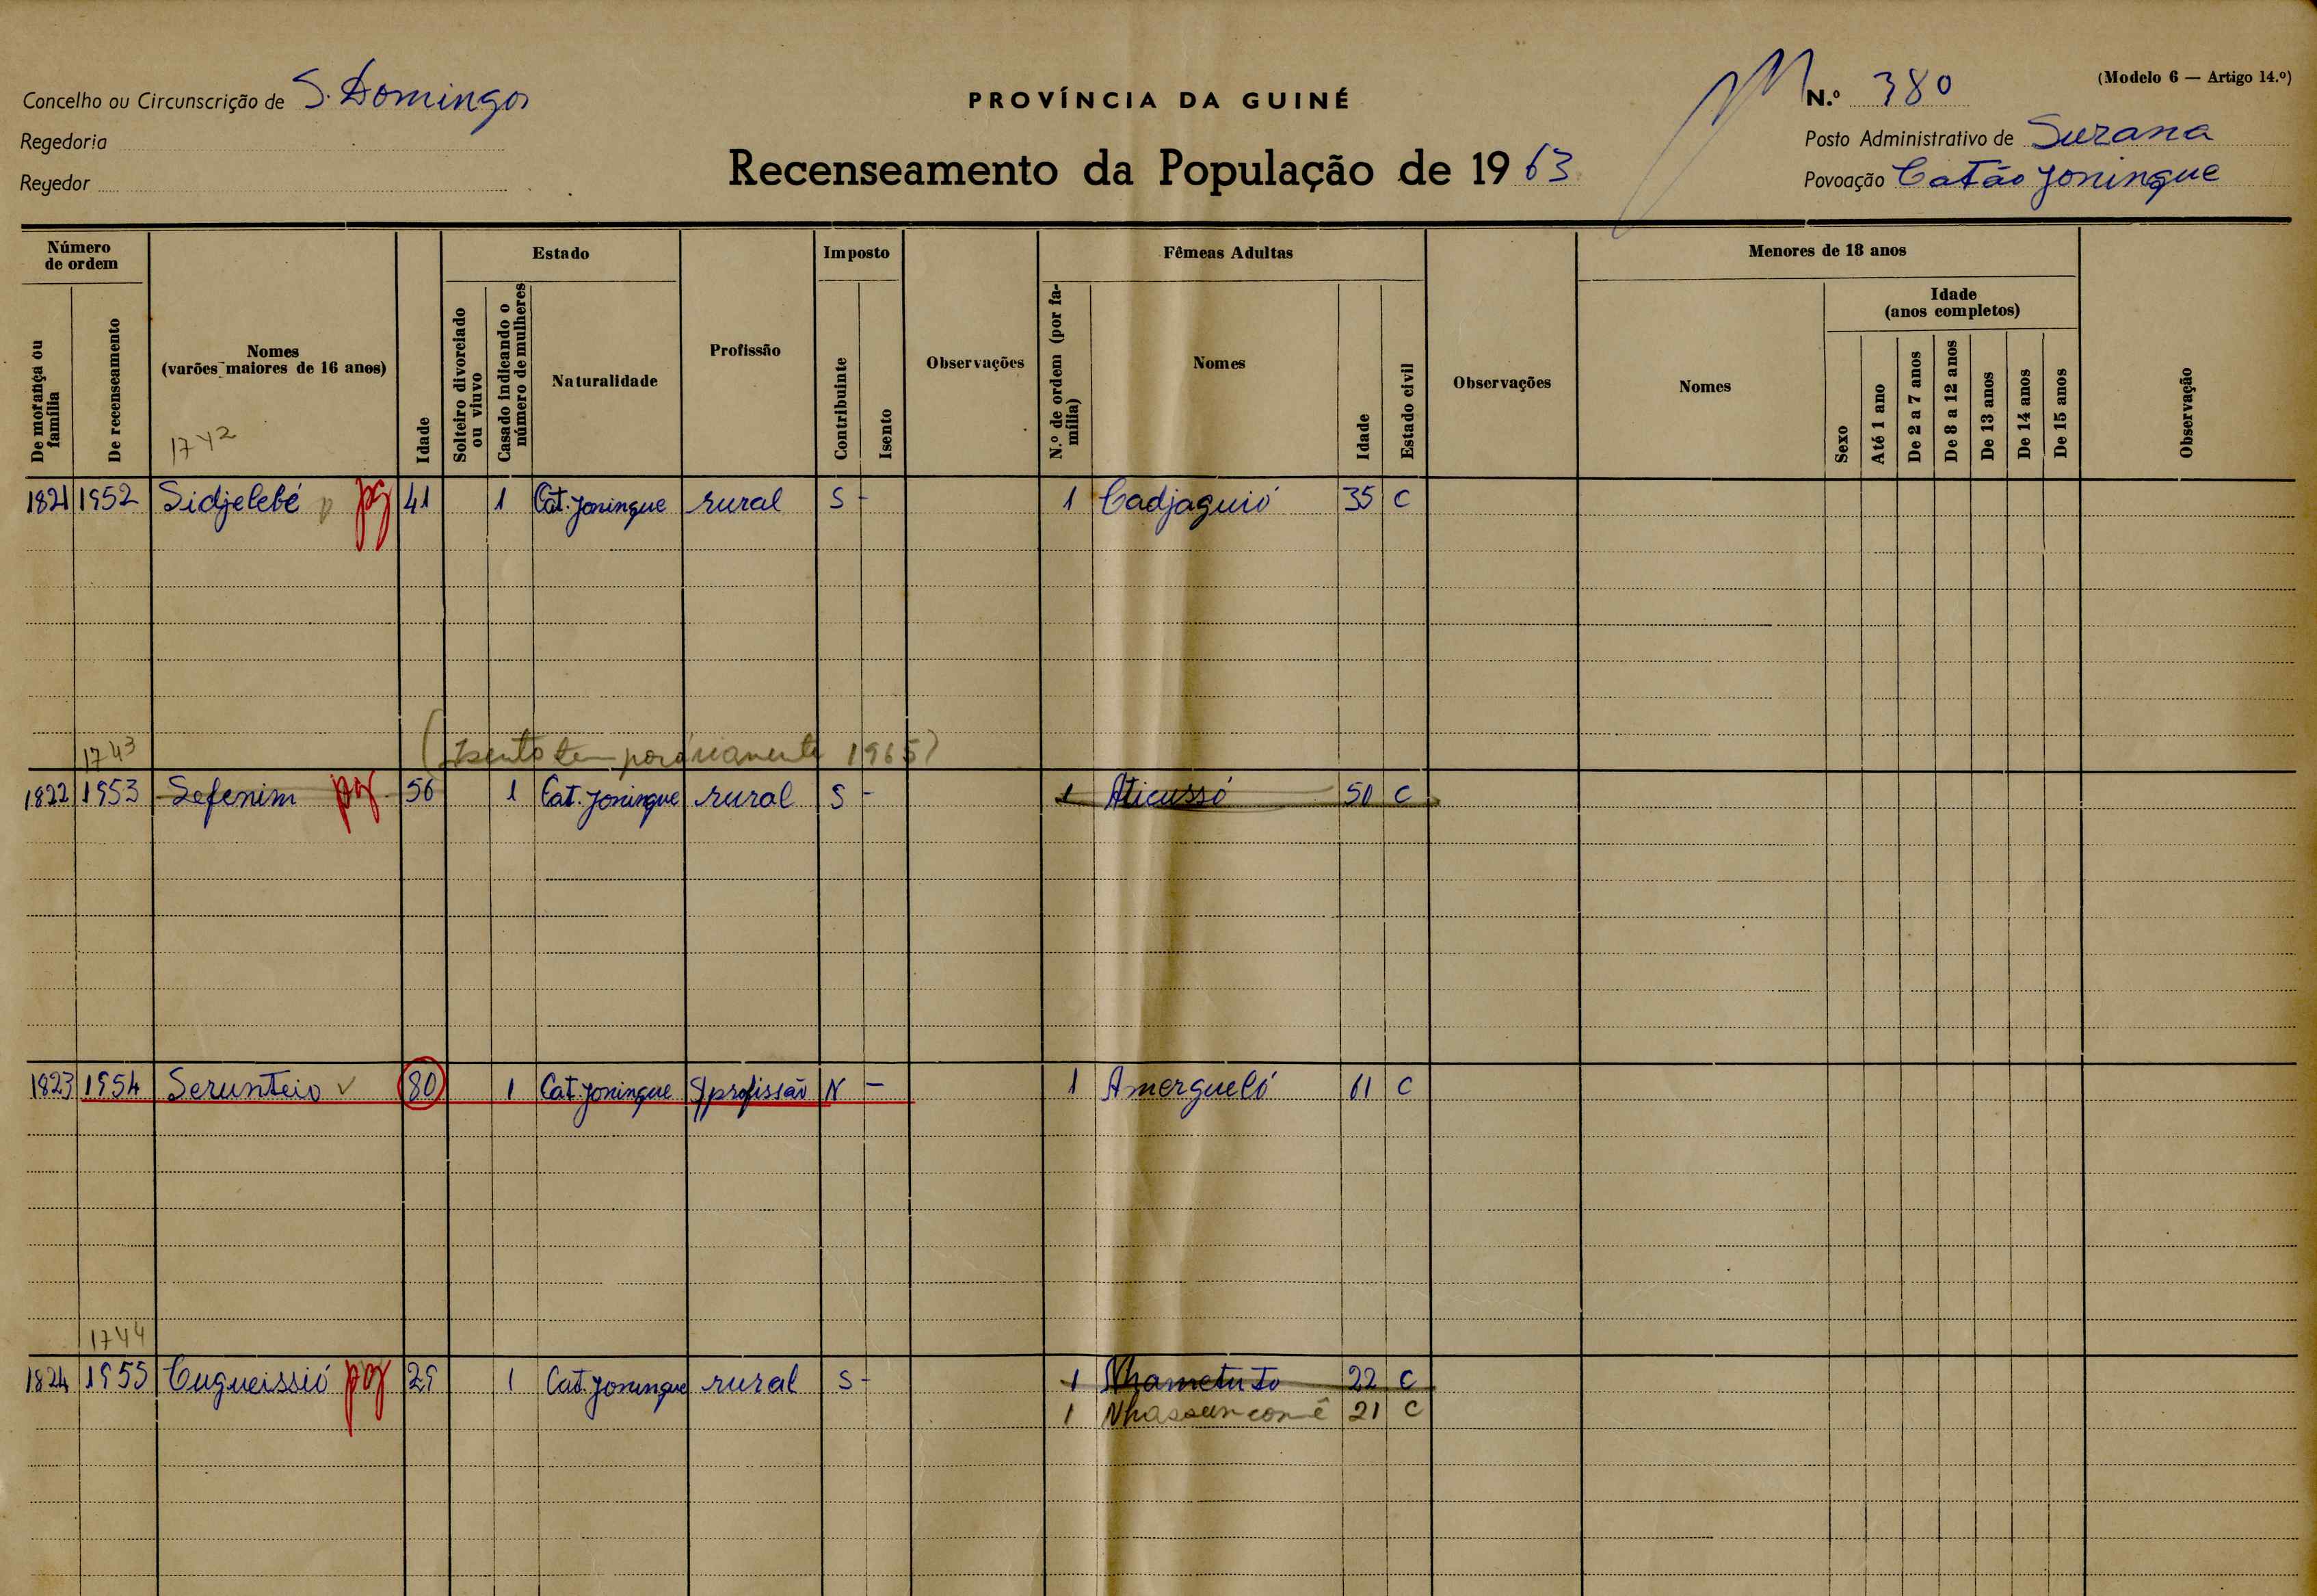 Concelho ou Circunscrição de S. Domingos
Regedoria
Regedor
PROVÍNCIA DA GUINÉ
Recenseamento da População de 1963
(Modelo 6 — Artigo 14.º)
N.º 380
Posto Administrativo de Suzana
Povoação Catão Joningue
Número de ordem
De morança ou família
De recenseamento
Nomes
(varões maiores de 16 anos)
1742
Idade
Estado
Solteiro divorciado ou viuvo
Casado indicando o número de mulheres
Naturalidade
Profissão
Imposto
Contribuinte
Isento
Observações
Fêmeas Adultas
N.º de ordem (por família)
Nomes
Idade
Estado civil
Observações
Menores de 18 anos
Nomes
Idade
(anos completos)
Sexo
Até 1 ano
De 2 a 7 anos
De 8 a 12 anos
De 13 anos
De 14 anos
De 15 anos
Observação
1821 1952 Sidjelebé pg 41 1 Cat. Joningue rural S - 1 Cadjaguió 35 C
1743 (Isento temporáriamente 1965)
1822 1953 Sefenim pg 56 1 Cat. Joningue rural S - 1 Aticussó 50 C
1823 1954 Serunteio 80 1 Cat. Joningue S/profissão N - 1 Amergueló 61 C
1744
1824 1955 Cugueissió pg 29 1 Cat. Joningue rural S - 1 Nhametuto 22 C
1 21 C